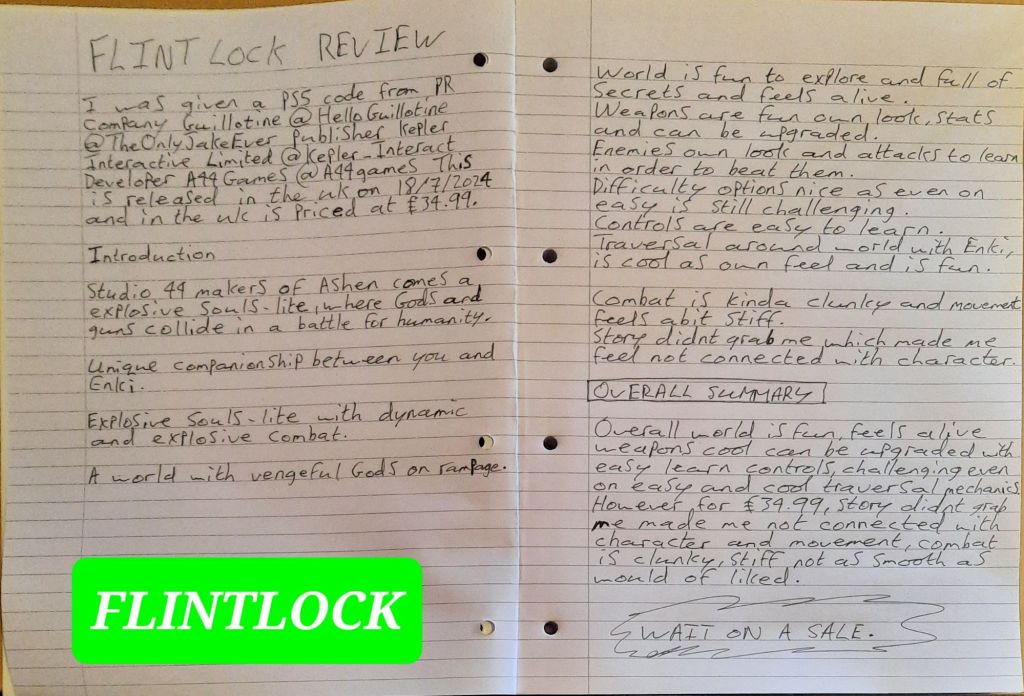 FLINTLOCK REVIEW
I was given a PS5 code from PR
Company Guillotine @HelloGuillotine
@TheOnlyJakeEver publisher Kepler
Interactive Limited @Kepler_Interact
Developer A44 Games @A44games This
is released in the uk on 18/7/2024
and in the uk is priced at £34.99.
Introduction
Studio 44 makers of Ashen comes a
explosive souls-lite, where Gods and
guns collide in a battle for humanity.
Unique companionship between you and
Enki.
Explosive souls-lite with dynamic
and explosive combat.
A world with vengeful Gods on rampage.
FLINTLOCK
World is fun to explore and full of
secrets and feels alive.
Weapons are fun own look, stats
and can be upgraded.
Enemies own look and attacks to learn
in order to beat them.
Difficulty options nice as even on
easy is still challenging.
Controls are easy to learn.
Traversal around world with Enki,
is cool as own feel and is fun.
Combat is kinda clunky and movement
feels abit stiff.
Story didnt grab me which made me
feel not connected with character.
OVERALL SUMMARY
Overall world is fun, feels alive
weapons cool can be upgraded with
easy learn controls, challenging even
on easy and cool traversal mechanics.
However for £34.99, story didnt grab
me made me not connected with
character and movement, combat
is clunky, stiff not as smooth as
would of liked.
WAIT ON A SALE.